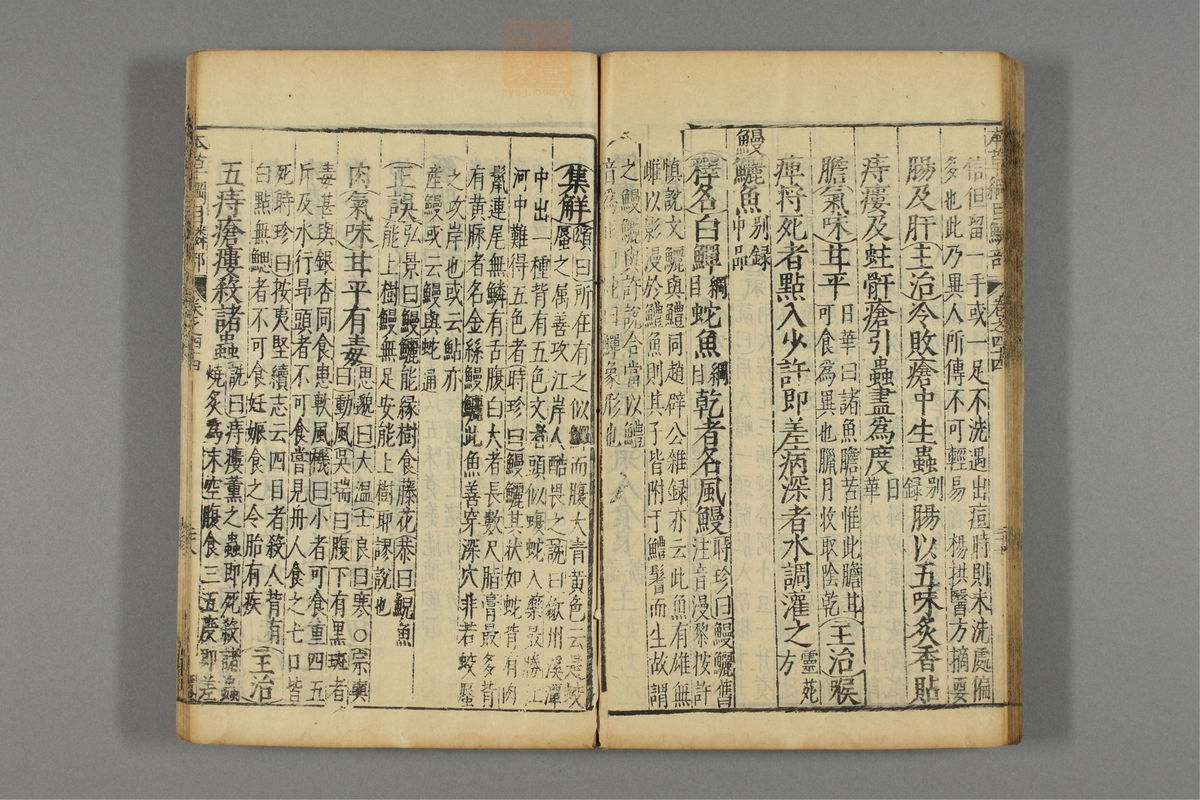 本草綱目鱗部 卷之四四
信但留一手或一足不洗遇出痘時則未洗處偏
多也此乃異人所傳不可輕易 楊拱醫方摘要
腸及肝主治冷敗瘡中生蟲別錄腸以五味炙香貼
痔瘻及蛀骭瘡引蟲盡為度日華
膽氣味甘平日華曰諸魚膽苦惟此膽甘可食為異也臘月收取陰乾主治喉
痺將死者點入少許即差病深者水調灌之靈苑方
鰻鱺魚別錄中品
釋名白鱓綱目蛇魚綱目乾者名風鰻時珍曰鰻鱺舊注音漫黎按許
慎說文鱺與鱧同趙辟公雜録亦云此魚有雄無
雌以影漫於鱧魚則其子皆附于鱧鬐而生故謂
之鰻鱺與許說合當以鱧
音為 曰蛇曰鱓象形也
集解頌曰所在有之似鱓而腹大青黃色云是蛟
蜃之属善攻江岸人酷畏之詵曰歙州溪潭
中出一種背有五色文者頭似蝮蛇入藥最勝江
河中難得五色者時珍曰鰻鱺其狀如蛇背有肉
鬣連尾無鱗有舌腹白大者長數尺脂膏最多背
有黃脉者名金絲鰻鱺此魚善穿深穴非若蛟蜃
之攻岸也或云鮎亦
產鰻或云鰻與蛇通
正誤弘景曰鰻鱺能緣樹食藤花恭曰鯢魚
能上樹鰻無足安能上樹即謬說也
肉氣味甘平有毒思邈曰大溫士良曰寒○宗奭
曰動風吳瑞曰腹下有黑斑者
毒甚與銀杏同食患軟風機曰小者可食重四五
斤及水行昻頭者不可食嘗見舟人食之七口皆
死時珍曰按夷堅續志云四目者殺人背有
白點無鰓者不可食妊娠食之令胎有疾主治
五痔瘡瘻殺諸蟲詵曰痔瘻熏之蟲即死殺諸蟲
燒炙為末空腹食三五度即差
本草綱目鱗部 卷之四四